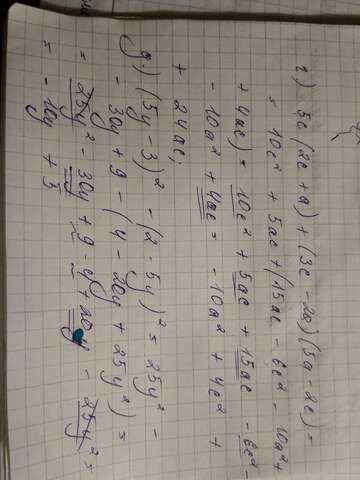 г) 5c(2c+a)+(3c-2a)(5a-2c)=
= 10c² + 5ac + (15ac - 6c² - 10a² +
+ 4ac) = 10c² + 5ac + 15ac - 6c² -
- 10a² + 4ac = -10a² + 4c² +
+ 24ac;
д) (5y-3)² - (2-5y)² = 25y² -
- 30y + 9 - (4 - 20y + 25y²) =
= 25y² - 30y + 9 - 4 + 20y - 25y² =
= -10y + 5